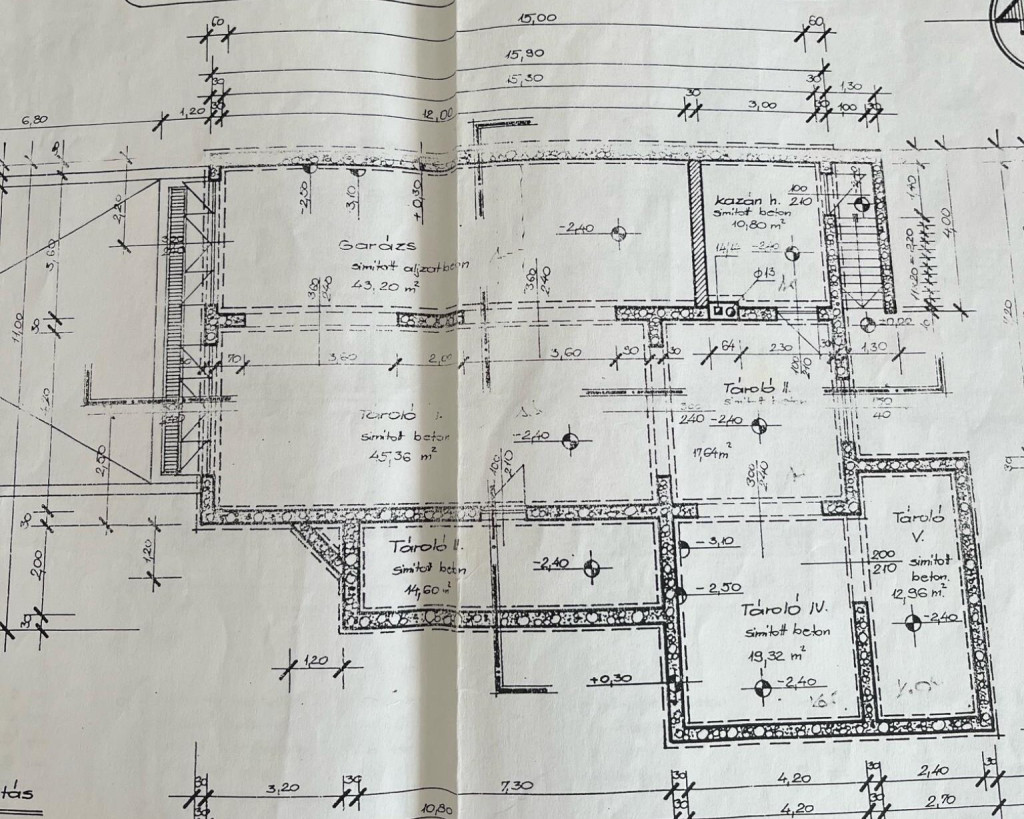 15,00
60
60
15,90
15,30
30
30
1,30
6,80
1,20
30
12,00
30
3,00
30
100
30
2,20
3,60
-2,50
-3,10
+0,30
Garázs
simított aljzatbeton
43,20 m²
-2,40
360
240
360
240
kazán h.
100
210
simított beton
10,80 m²
-2,40
14/14
Φ13
1,40
4,00
11,00
30
4,20
2,50
70
3,60
2,00
3,60
90
30
64
230
100
210
1,30
Tároló I.
simított beton
45,36 m²
-2,40
100
210
Tároló II.
300
240
-2,40
17,64 m²
300
240
40
30
2,00
30
1,20
Tároló II.
simított beton
14,60 m²
-2,40
-3,10
-2,50
+0,30
Tároló IV.
simított beton
19,32 m²
-2,40
Tároló
V.
200
210
simított
beton.
12,96 m²
-2,40
1,20
tás
30
3,20
30
7,30
30
4,20
30
2,40
30
10,80
30
4,20
30
2,70